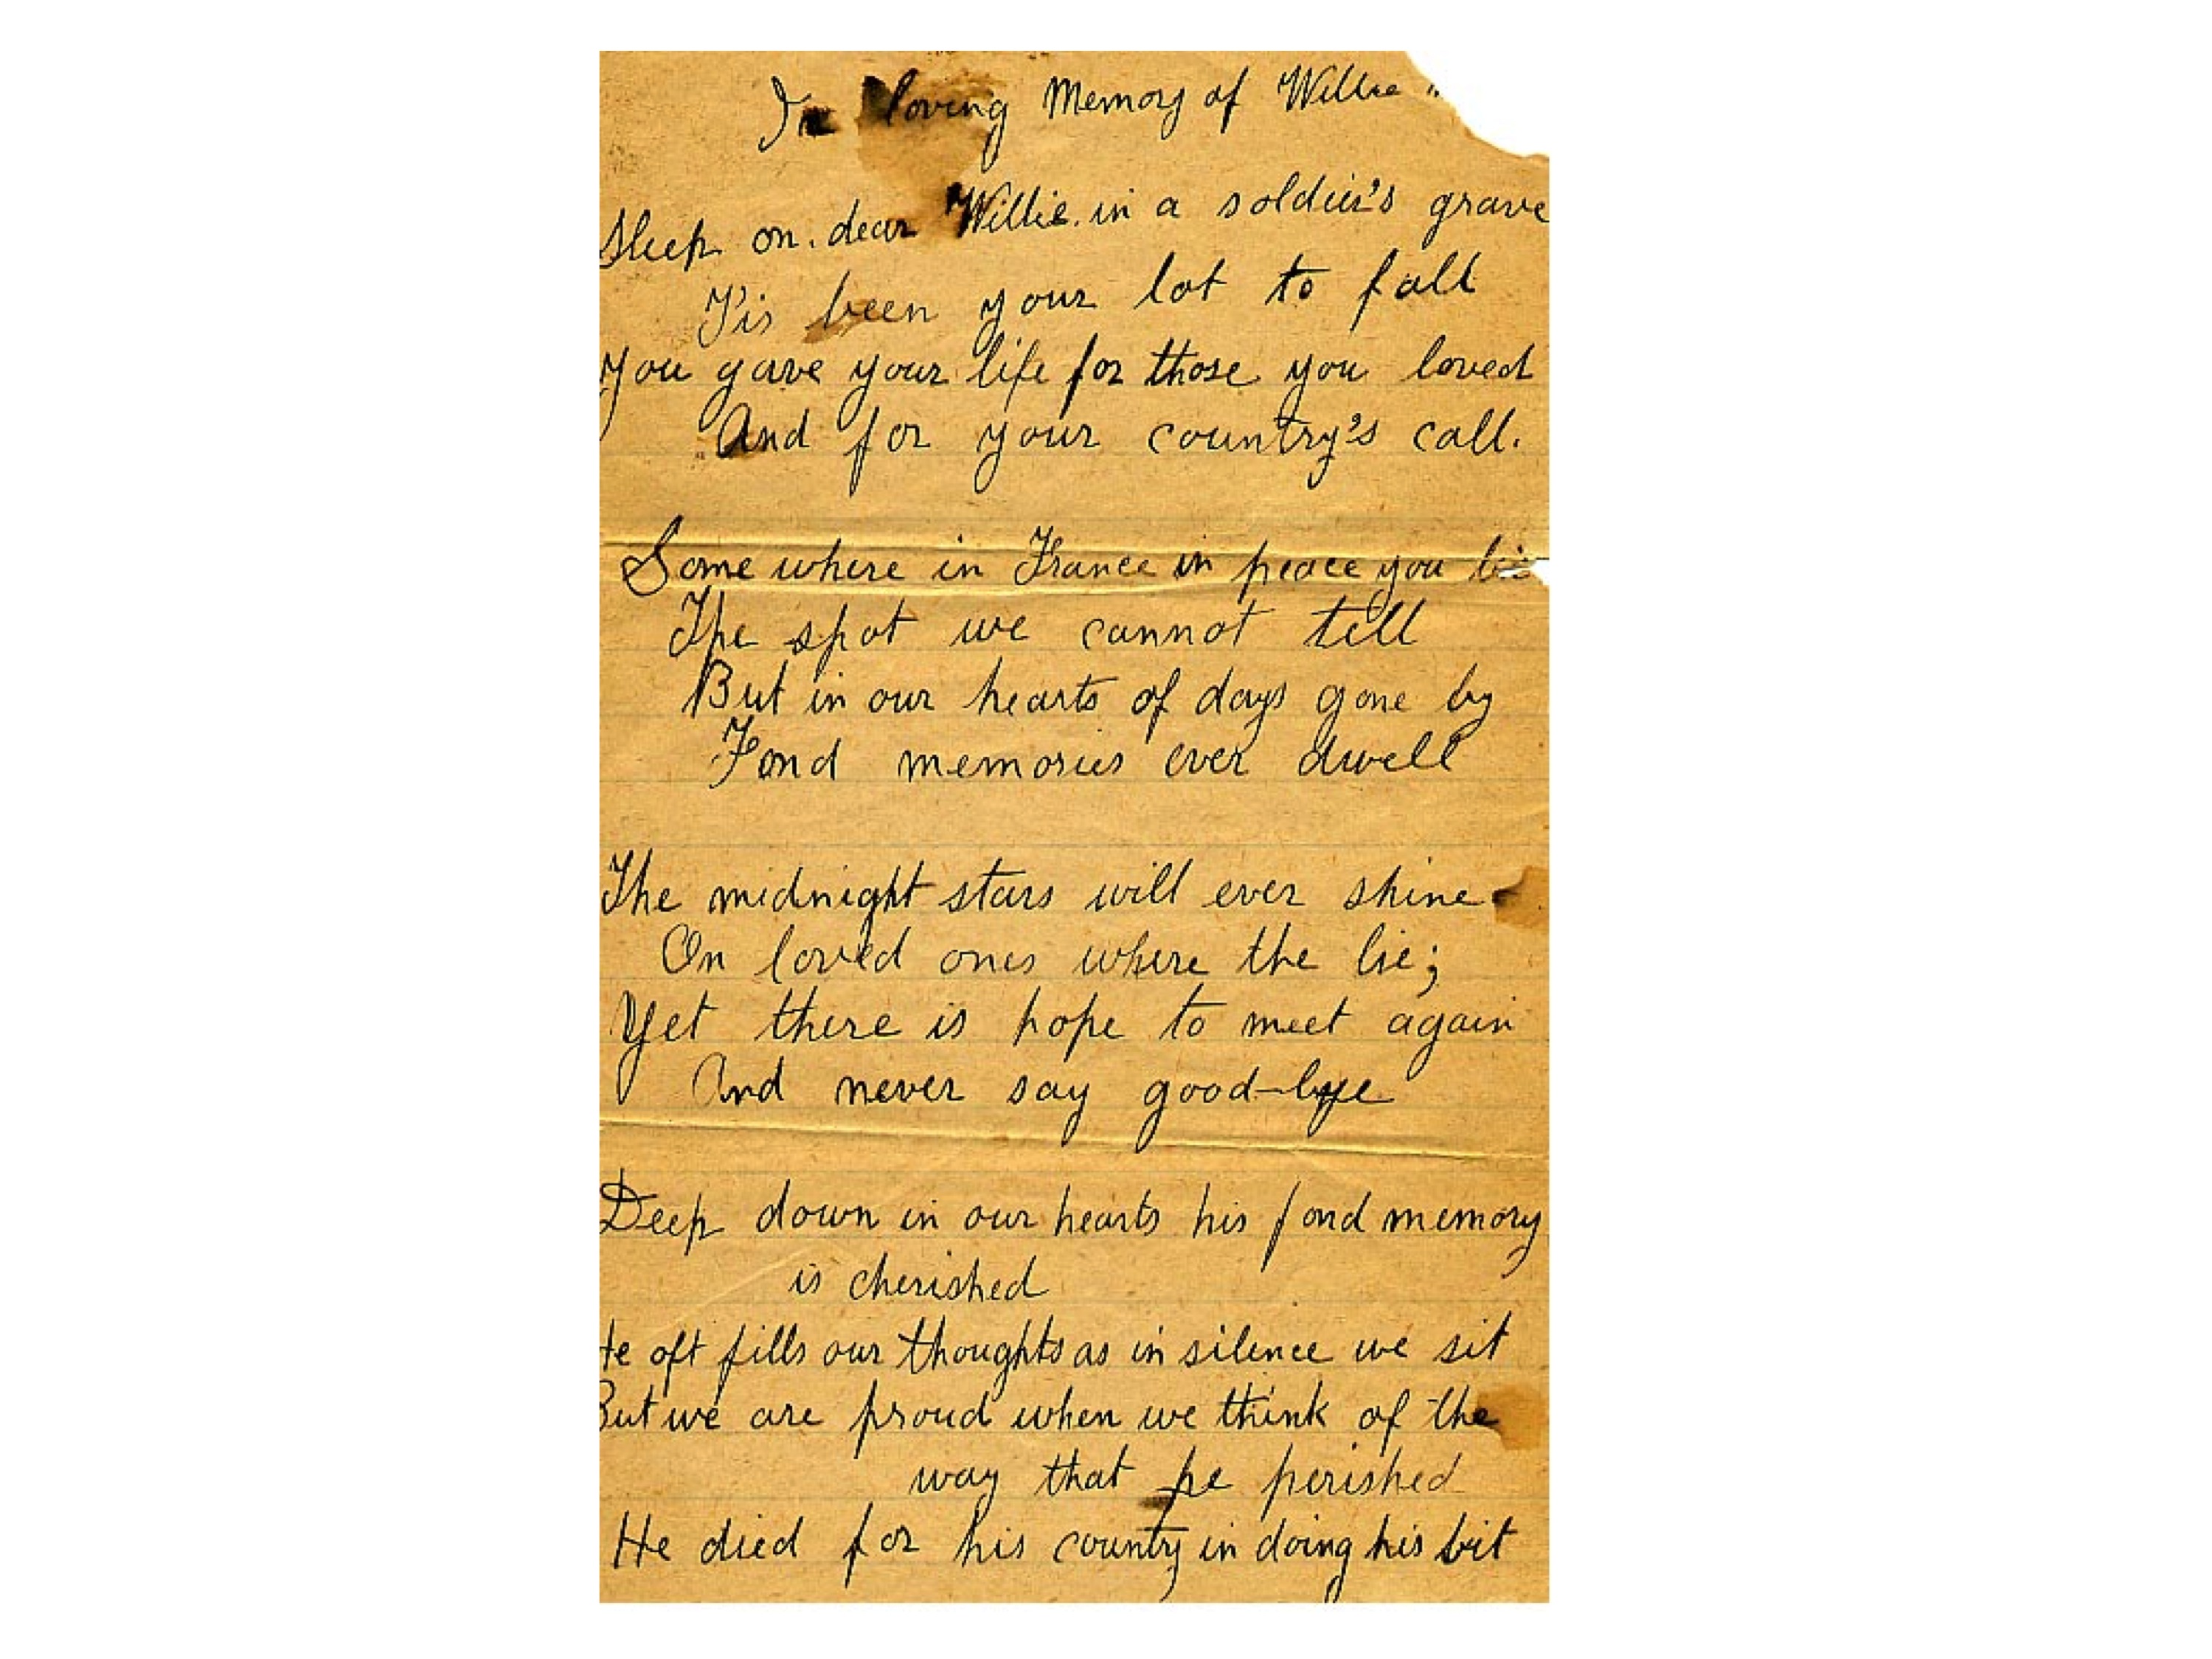 In loving Memory of Willie
Sleep on. dear Willie. in a soldier's grave
T'is been your lot to fall
You gave your life for those you loved
And for your country's call.
Some where in France in peace you lie
The spot we cannot tell
But in our hearts of days gone by
Fond memories ever dwell
The midnight stars will ever shine
On loved ones where the lie;
Yet there is hope to meet again
And never say good-bye
Deep down in our hearts his fond memory
is cherished
He oft fills our thoughts as in silence we sit
But we are proud when we think of the
way that he perished
He died for his county in doing his bit